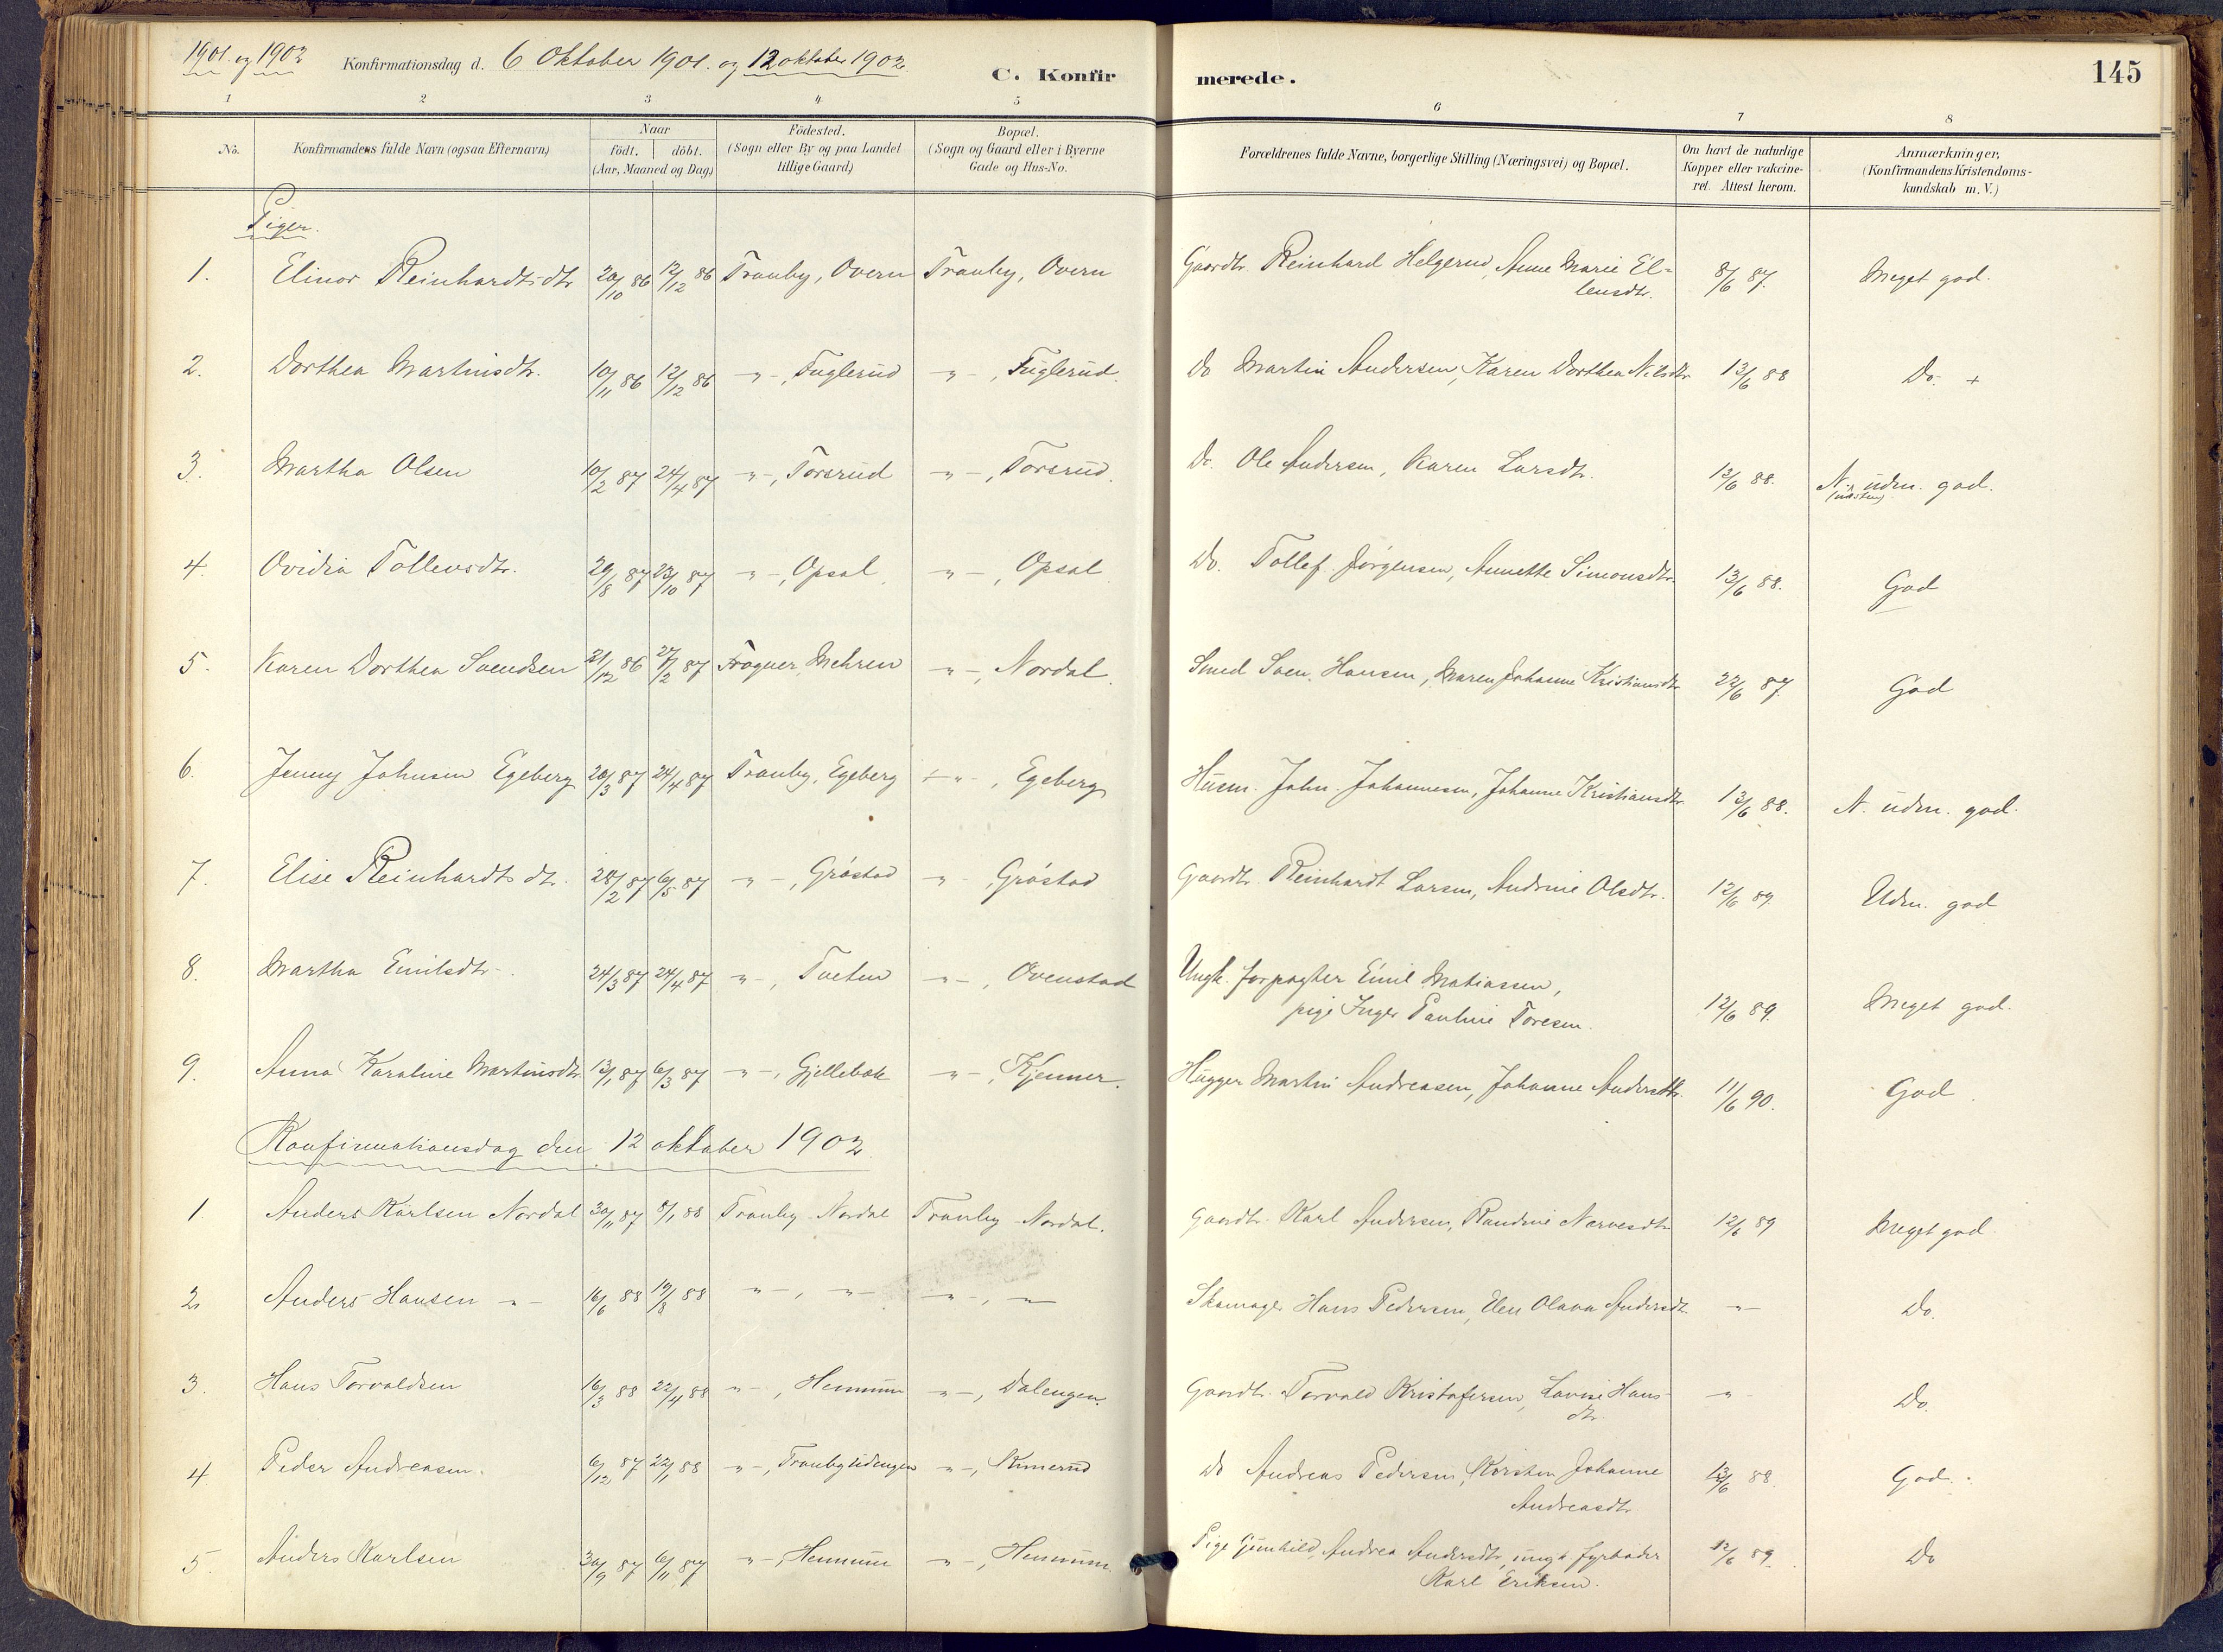 1901 og 1902 Konfirmationsdag d. 6 Oktober 1901. og 12 oktober 1902. C. Konfirmerede. 145
1 2 3 4 5 6 7 8
No. Konfirmandens fulde Navn (ogsaa Efternavn) Naar födt. döbt. (Aar, Maaned og Dag) Födested. (Sogn eller By og paa Landet tillige Gaard) Bopæl. (Sogn og Gaard eller i Byerne Gade og Hus-No. Forældrenes fulde Navne, borgerlige Stilling (Næringsvei) og Bopæl. Om havt de naturlige Kopper eller vakcineret. Attest herom. Anmærkninger, (Konfirmandens Kristendomskundskab m. V.)
Piger.
1. Elinor Reinhardtsdtr 20/10 86 12/12 86 Tranby, Overn Tranby, Overn Gaardbr. Reinhard Helgerud, Anne Marie Ellensdtr. 8/6 87. Meget god.
2. Dorthea Martinsdtr. 10/11 86 12/12 86 -"-, Fuglerud -"-, Fuglerud. Do Martin Andersen, Karen Dorthea Nilsdtr 13/6 88 Do. +
3. Martha Olsen 10/2 87 24/4 87 -"-, Torsrud -"-, Torsrud. Do. Ole Andersen, Karen Larsdtr. 13/6 88. N. udm. god.
4. Ovidia Tollevsdtr. 29/8 87 23/10 87 -"-, Opsal -"-, Opsal Do. Tollef Jørgensen, Annette Simonsdtr 13/6 88. God
5. Karen Dorthea Svendsen 21/12 86 27/2 87 Frogner, Mehren -"-, Nordal Smed Sven Hansen, Maren Johanne Kristiansdtr 22/6 87. God
6. Jenny Johnsen Egeberg 20/3 87 24/4 87 Tranby, Egeberg -"-, Egeberg Husm. John Johannesen, Johanne Kristiansdtr. 13/6 88. N. udm. god.
7. Elise Reinhardtsdtr. 28/2 87 6/5 87 -"-, Gröstad -"-, Gröstad Gaardbr. Reinhardt Larsen, Andrine Olsdtr. 12/6 89. Udm. god
8. Martha Emilsdtr. 24/3 87 24/4 87 -"-, Tveten -"-, Ovenstad Ungk. forpagter Emil Matiassen,
pige Inger Pauline Toresen. 12/6 89. Meget god.
9. Anna Karoline Martinsdtr. 13/1 87 6/3 87 -"-, Gjellebæk -"-, Kjenner. Hugger Martin Andreasen, Johanne Andersdtr. 11/6 90. God
Konfirmationsdag den 12 oktober 1902.
1 Anders Karlsen Nordal 30/11 87 8/1 88 Tranby Nordal Tranby Nordal. Gaardbr. Karl Andersen, Randine Narvesdtr 12/6 89 Meget god
2. Anders Hansen -"- 16/6 88 19/8 88 -"-, -"- -"-, -"- Skomager Hans Pedersen, Elen Olava Andersdtr. -"- Do.
3. Hans Torvaldsen 16/3 88 22/4 88 -"-, Hennum -"-, Dalengen. Gaardbr. Torvald Kristofersen, Lovise Hansdtr. -"- Do.
4 Peder Andreasen. 6/12 87 22/1 88 -"-, Tranbyudengen -"-, Kinnerud Do Andreas Pedersen, Kirsten Johanne
Andreasdtr. 13/6 88. God.
5. Anders Karlsen 30/9 87 6/11 87 -"-, Hennum -"-, Hennum. Pige Gunhild Andrea Andersdtr, ungk. fyrbøder
Karl Eriksen. 12/6 89. Do